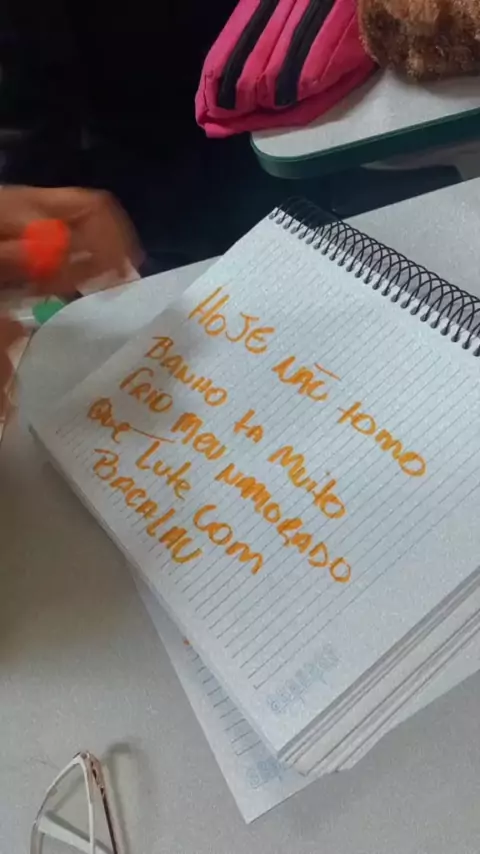 HOJE NÃO tomo
BANHO tA muito
frio meu NAMORADO
QUE Lute Com
BACALAU